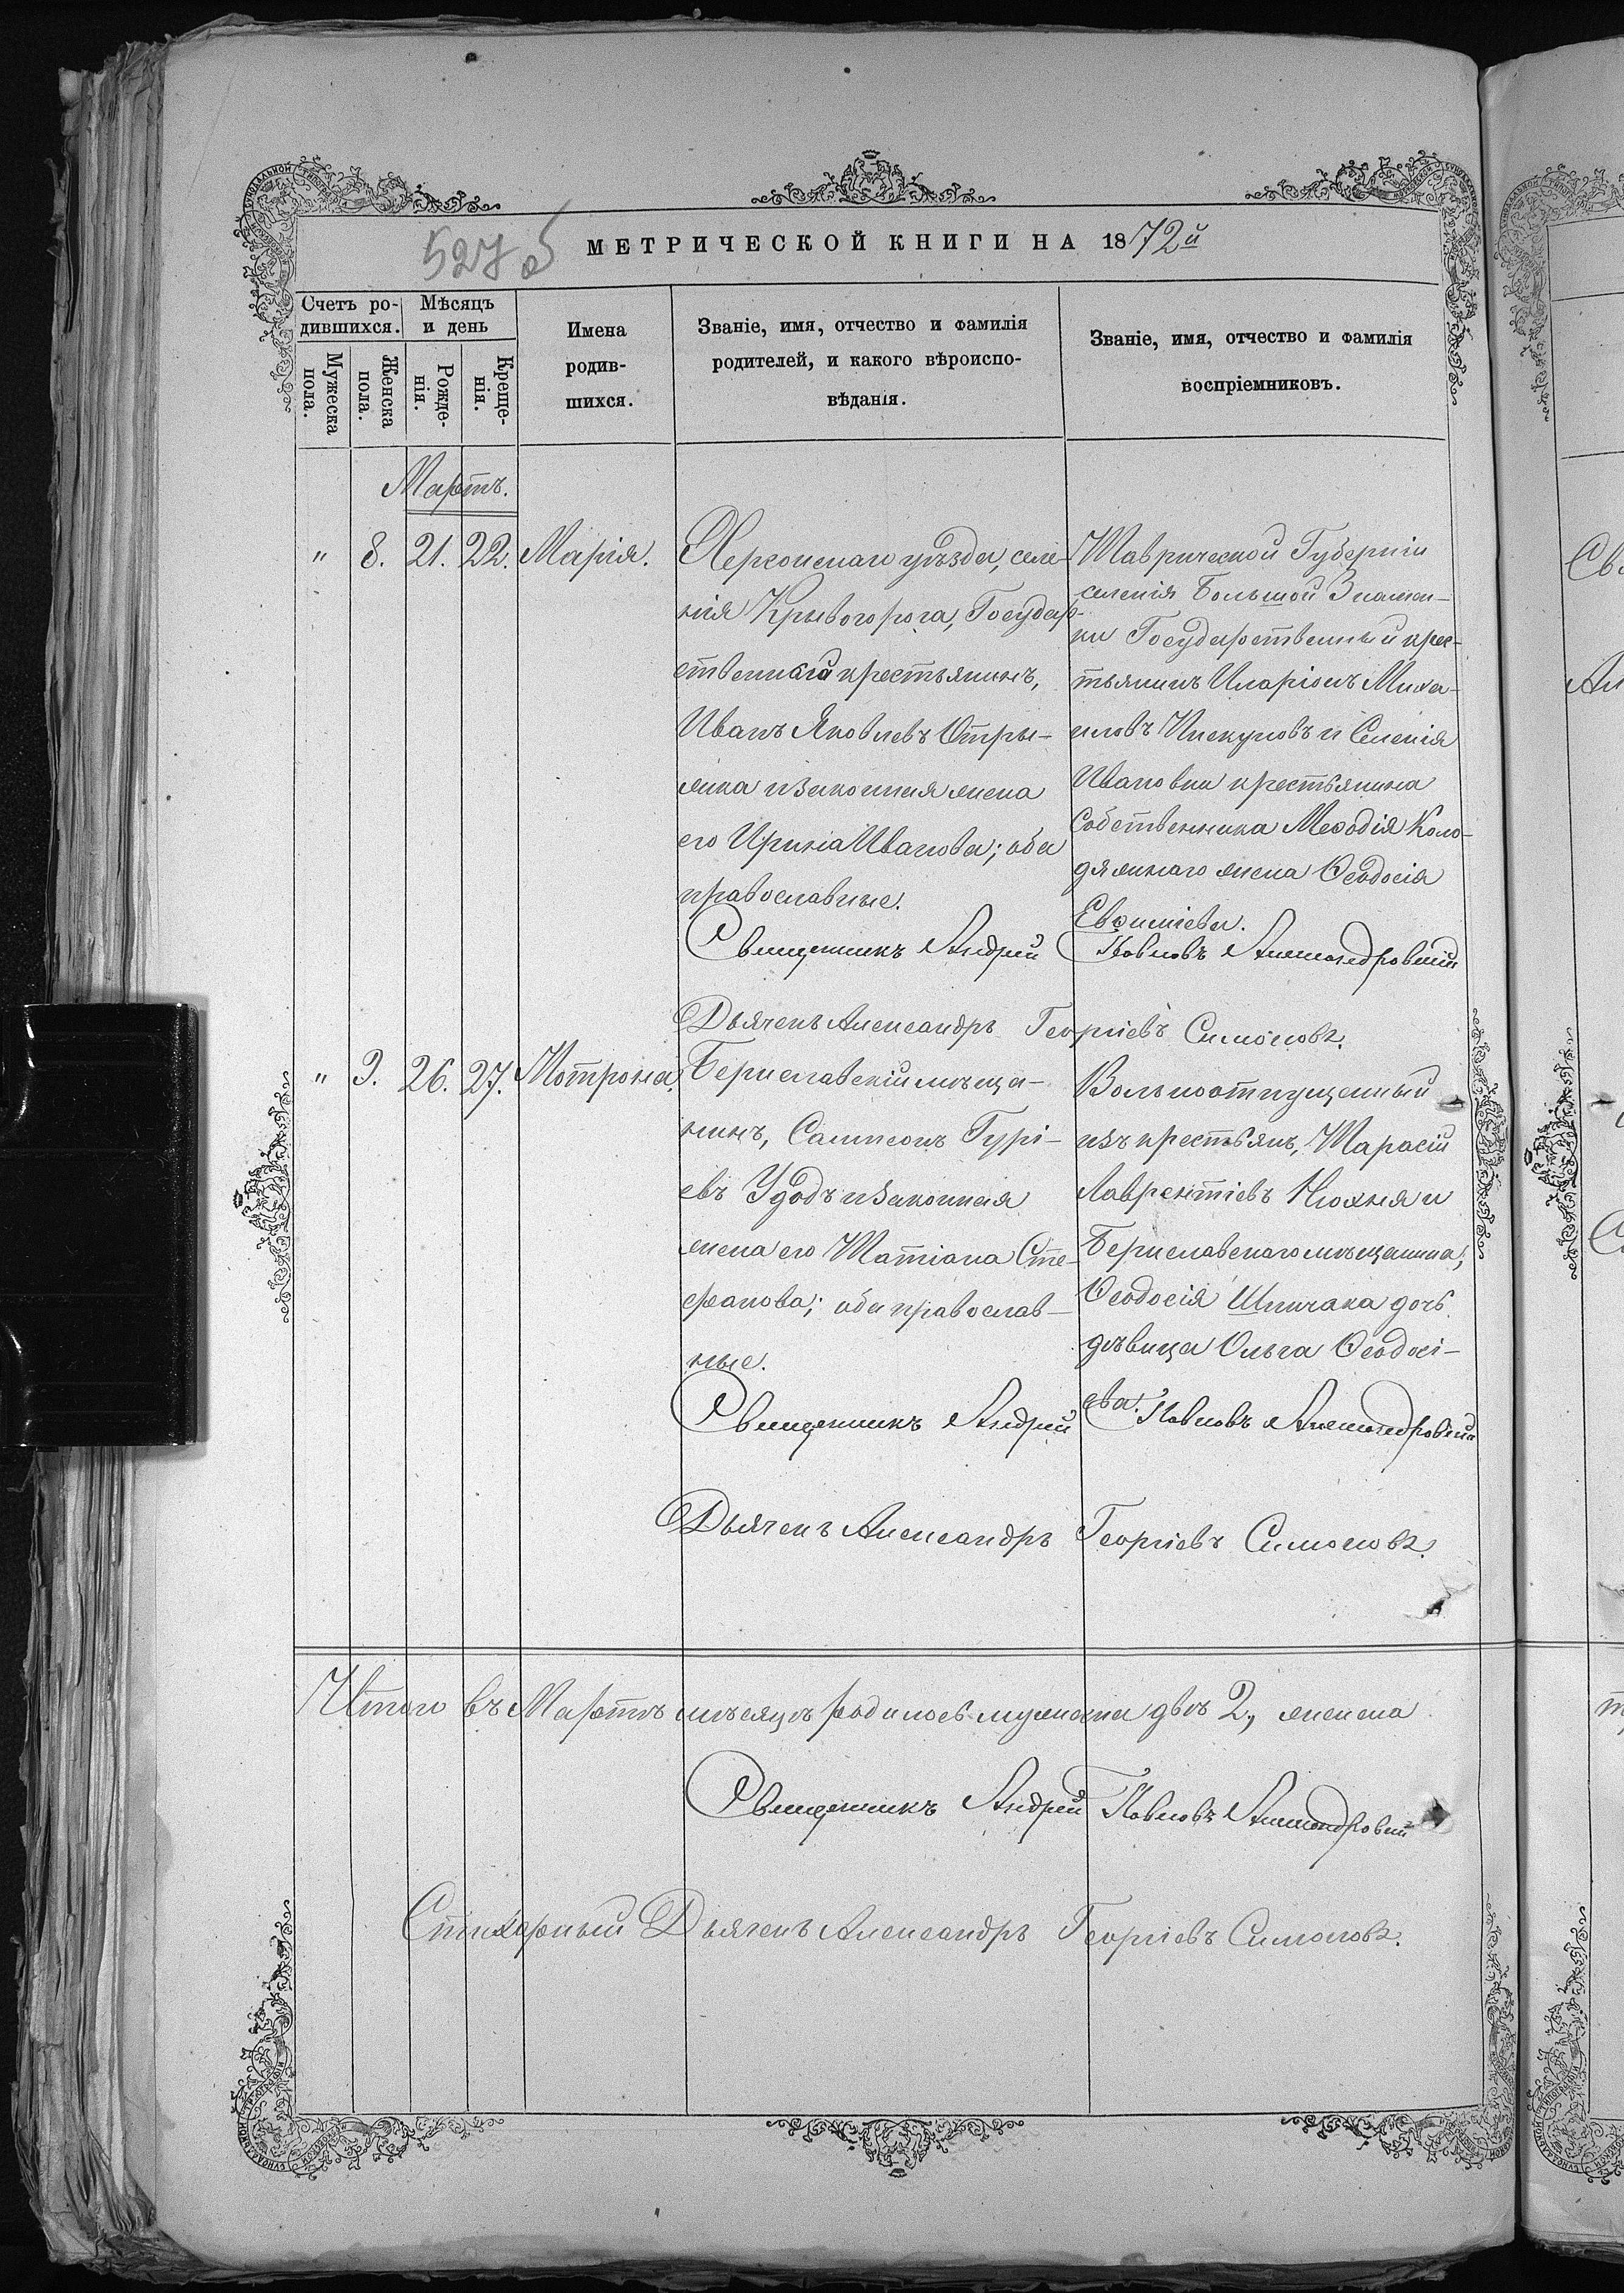 527 об
МЕТРИЧЕСКОЙ КНИГИ НА 1872й
Счетъ родившихся.
Мѣсяцъ и день
Мужеска пола.
Женска пола.
Рожденія.
Крещенія.
Имена родившихся.
Званіе, имя, отчество и фамилія
родителей, и какого вѣроиспо-
вѣданія.
Званіе, имя, отчество и фамилія
воспріемниковъ.
Мартъ.
" 8. 21. 22. Марія.
Херсонскаго уѣзда, селе-
нія Крывогорога, Государ-
ственный крестьянинъ,
Иванъ Яковлевъ Отры-
жка и законная жена
его Ирина Иванова; оба
православные.
Таврической Губерніи
селенія Большой Знамен-
ки Государственный крес-
тьянинъ Иларіонъ Миха-
иловъ Пискуновъ и Селенія
Ивановки крестьянина
Собственника Меѳодія Коло-
дяжнаго жена Ѳеодосія
Евѳиміева.
Священникъ Андрей Павловъ Александровскій
Дьячекъ Александръ Георгіевъ Симоновъ.
" 9. 26. 27. Мотрона.
Бериславскій мѣща-
нинъ, Сампсонъ Гурі-
евъ Удодъ и законная
жена его Татіана Сте-
фанова; оба православ-
ные.
Вольноотпущенный
изъ крестьянъ, Тарасій
Лаврентіевъ Нюхня и
Бериславскаго мѣщанина,
Ѳеодосія Шпичака дочь
дѣвица Ольга Ѳеодосі-
ева.
Священникъ Андрей Павловъ Александровскій
Дьячекъ Александръ Георгіевъ Симоновъ.
Итого въ Мартѣ мѣсяцѣ родилось мужеска двѣ 2, женска
Священникъ Андрей Павловъ Александровскій
Стихарный Дьячекъ Александръ Георгіевъ Симоновъ.